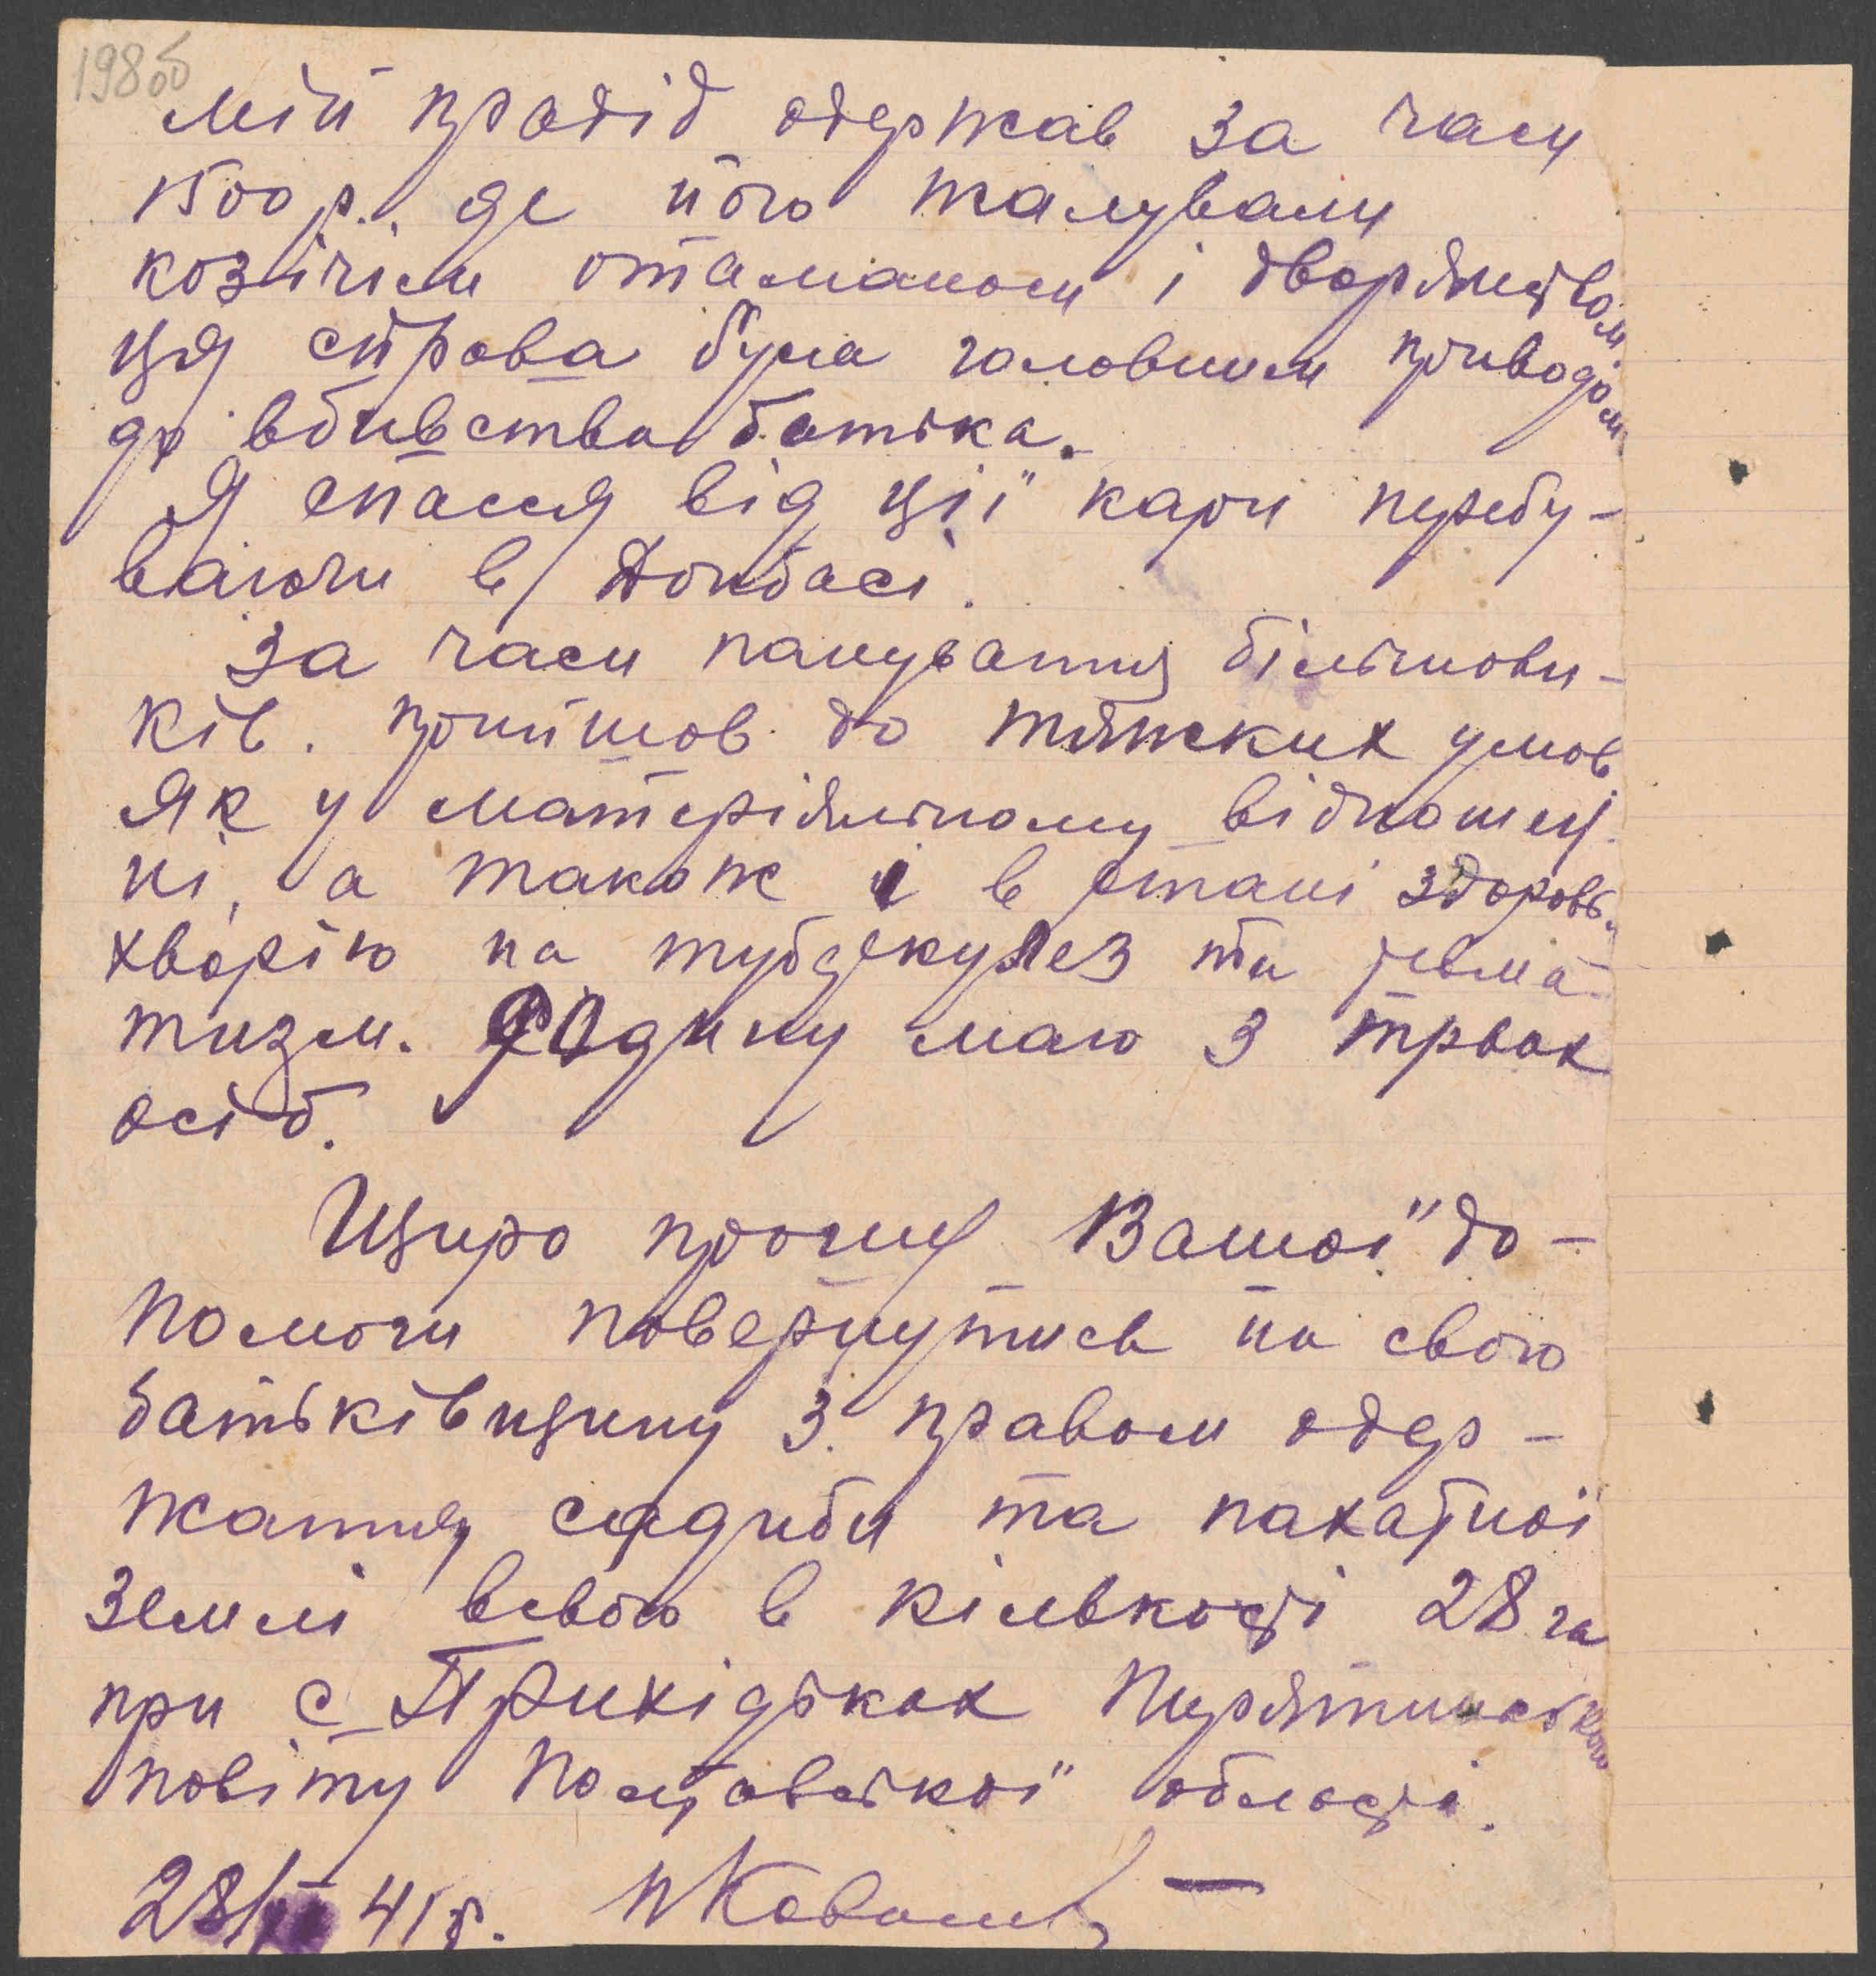 198об
мій прадід одержав за часи
1500 р. де його жалували
козічім отаманом і дворянством.
ця справа була головним приводом
до вбивства батька.
Я спасся від ції кари перебу-
ваючи в Донбасі.
За часи панування більшови-
ків. прийшов до тяжких умов
як у матеріяльному відношен
ні, а також і в стані здоровь.
хворію на туберкулез та ревма-
тизм. Родину маю з трьох
осіб.
Щиро прошу Вашої до-
помочи повернутись на свою
батьківщину з правом одер-
жання садиби та пахатноі
землі всьою в кількості 28 га
при с. Прихідьках Пирятинського
повіту Полтавської області.
28/ 41 р. П Ковал